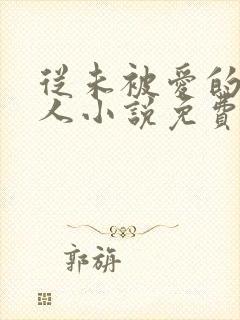 從未被愛的
人小說免費
郭旃